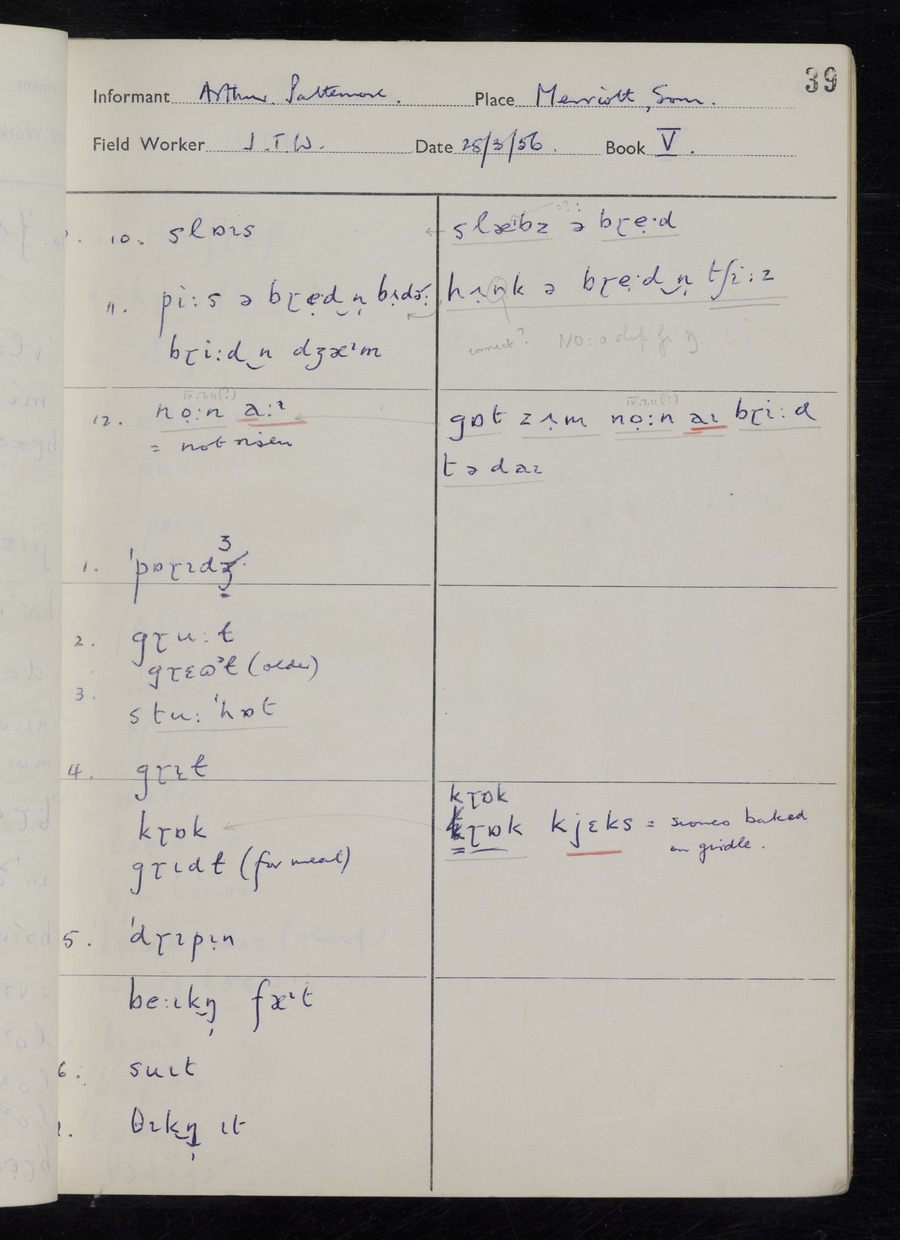 39
Informant Arthur Pattemore. Place Merriott, Som.
Field Worker J.T.W. Date 28/3/56. Book V.
10. slɒɪs
slæˑbz ə bɽẹˑd
11. piːs ə bɽẹd n̩
hʌ̣nk ə bɽẹˑd n̩ tʃiːz
bɽiːd n dʒæˑm
correct? NO: a slip for ŋ
12. nọːn aːɪ
= not risen
gɒt zʌ̣m nọːn aɪ bɽiːd
tədaɪ
1. ˈpɒɽɪdʒ
3
2. gɽuːt
gɽɛɷˀt (older)
3. stuːˈhɒt
4. gɽɪt
kɽɒk
kɽɒk
kɽɒk kjɛks = scones baked
on gridle.
gɽɪdt (for meal)
5. ˈdɽɪpɪ̣n
beːɪkŋ̩ fæˑt
6. suɪt
θɪkŋ̩ ɪt